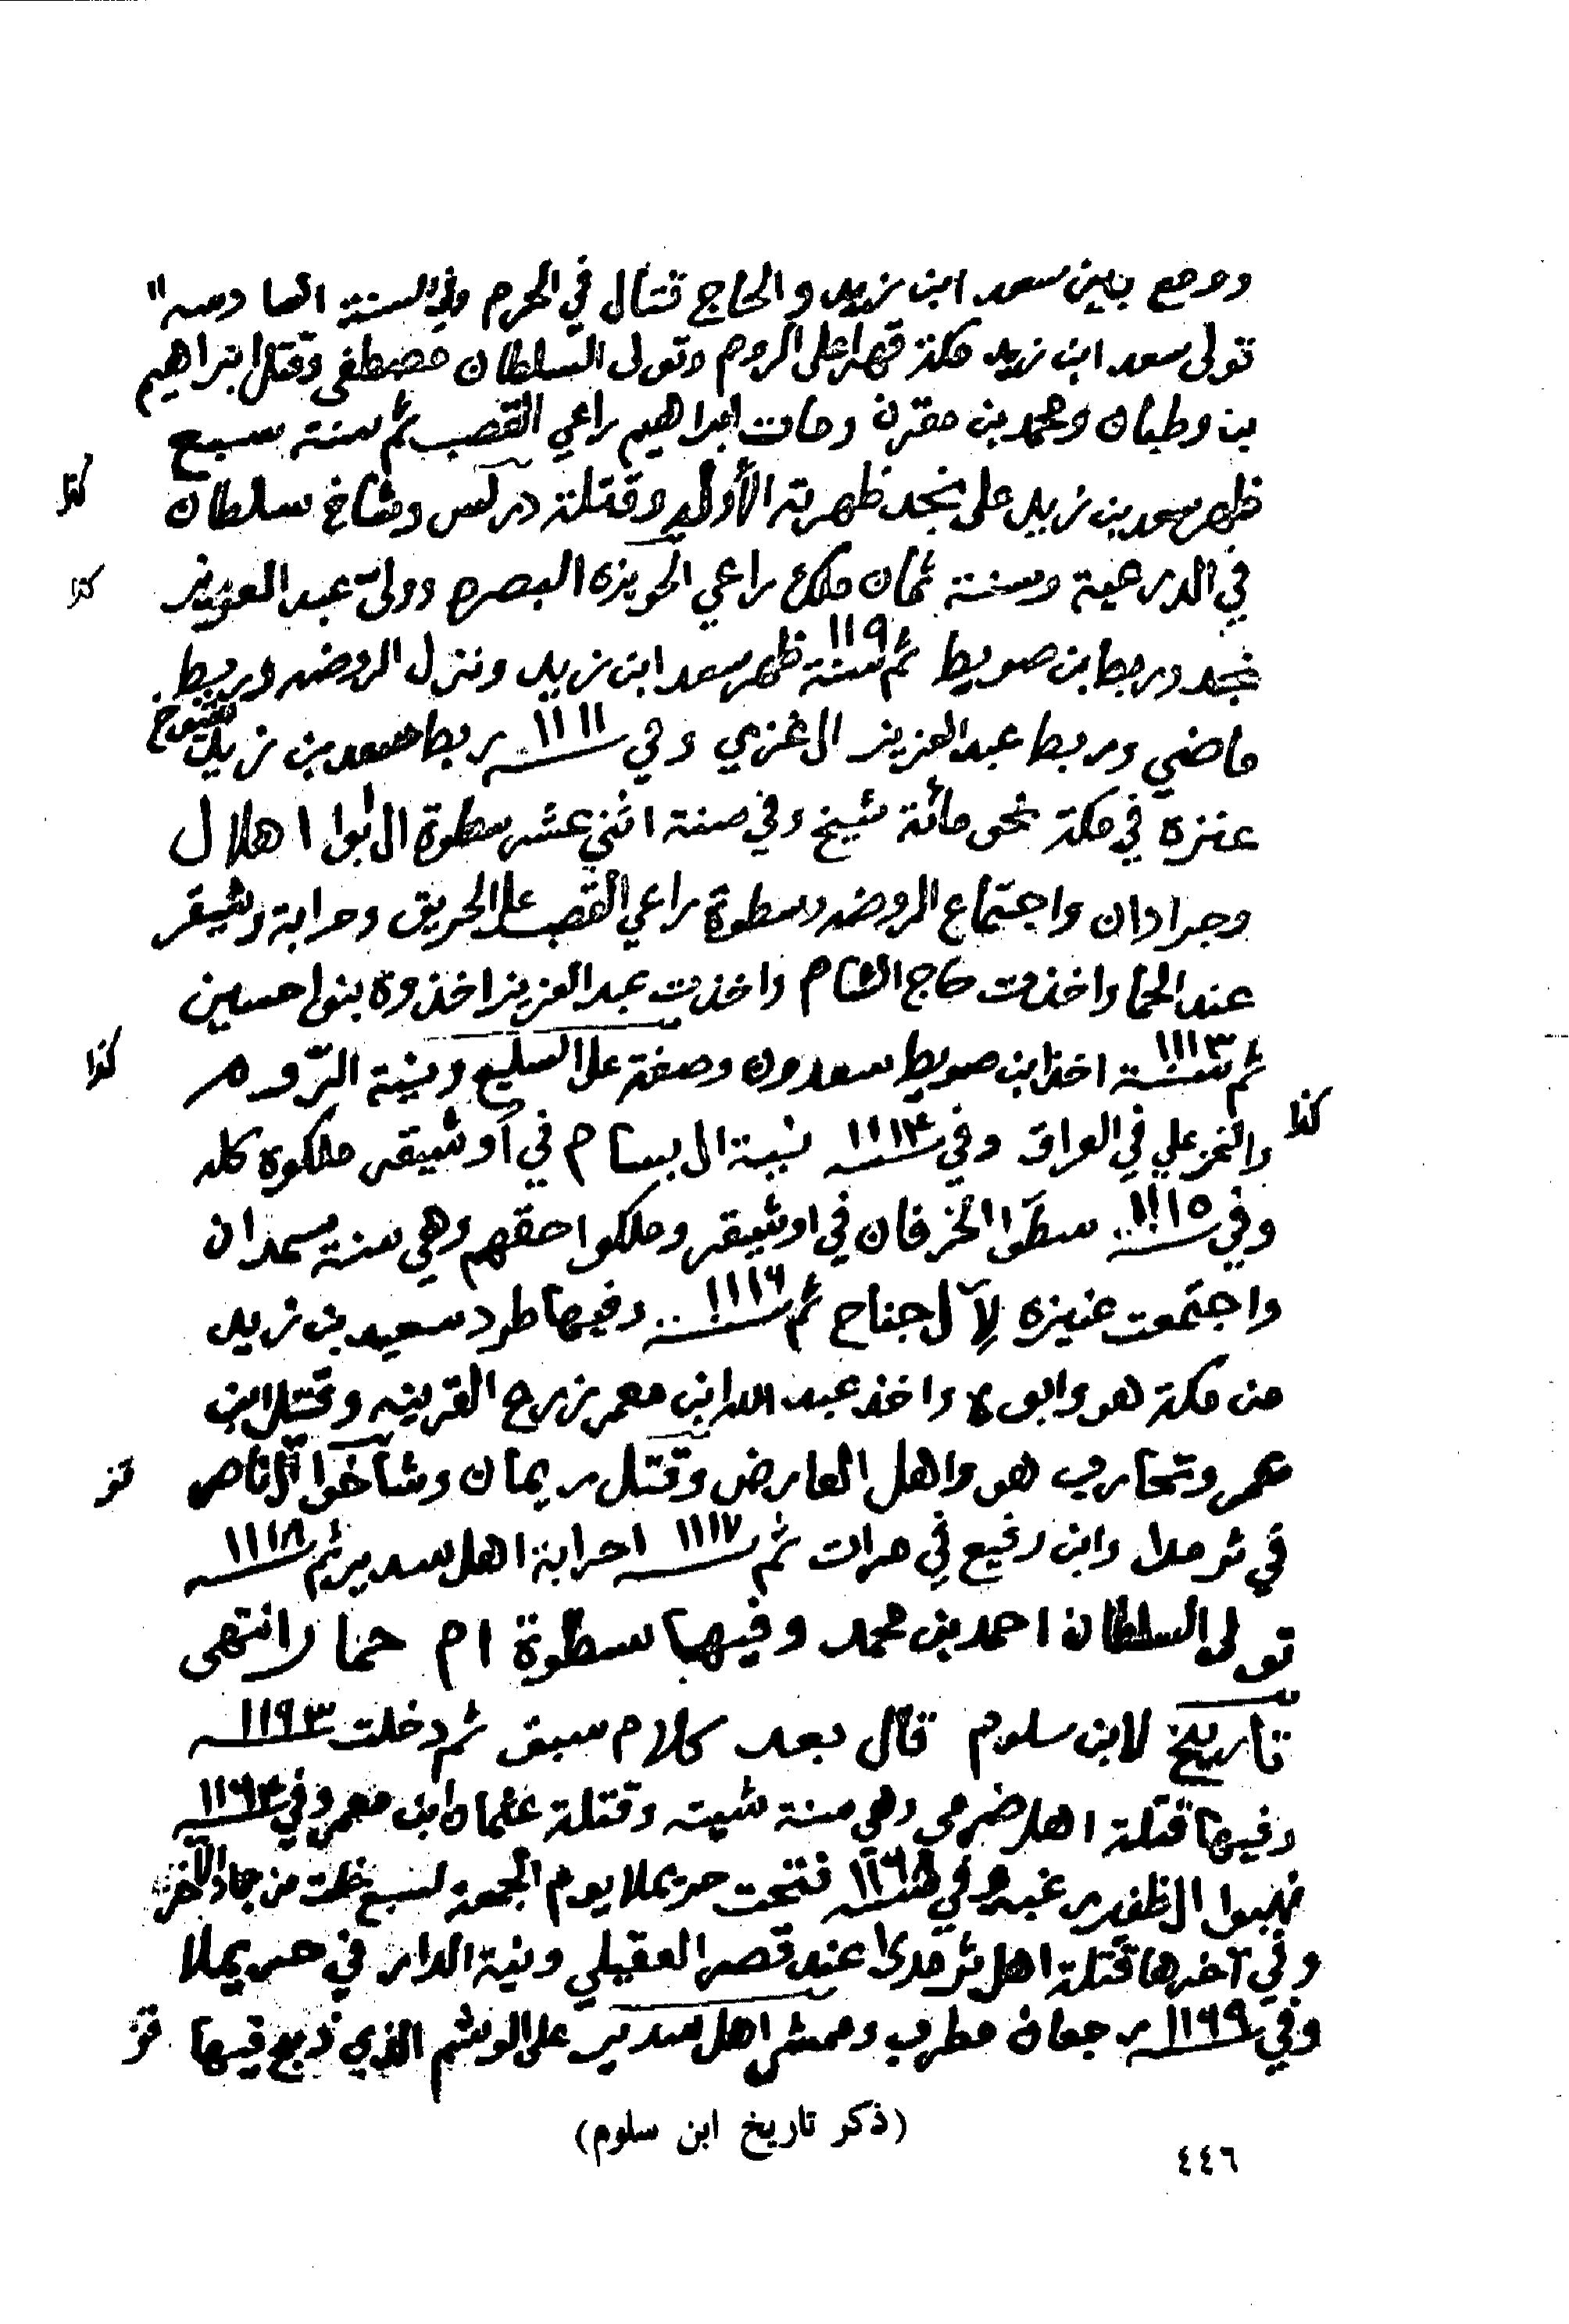 ووقع بين سعد ابن زيد والحاج قتال في الحرم وفي السنة السادسه
تولى سعد ابن زيد مكة قهرا على الروم وتولى السلطان مصطفى وقتل ابراهيم
بن وطبان ومحمد بن مقرن ومات ابراهيم راعي القصب ثم سنة سبع
ظهر سعد بن زيد على نجد ظهرته الأولى وقتلة دركس وشاخ سلطان كذا
في الدرعية وسنة ثمان ملك راعي الحويزه البصره وولى عبد العزيز كذا
نجد وربط ابن صويط ثم سنة ١١٩ ظهر سعد ابن زيد ونزل الروضه وربط
ماضي وربط عبد العزيز ال غزي وفي ١١١١ ربط سعد بن زيد شيوخ
عنزه في مكة نحو مائة شيخ وفي سنة اثني عشر سطوة ال ابوا هلال
وجرادان واجتماع الروضه وسطوة راعي القصب على الحريق وحرابة وشيقر
عند الحما واخذت حاج الشام واخذت عبد العزيز اخذوة بنوا حسين
ثم سنة ١١١٣ اخذ ابن صويط سعدون وصفة على السليع وبنية الروم كذا
كذا والخزعلي في العراق وفي ١١١٤ نسبة ال بسام في أوشيقر ملكوه كله
وفي ١١١٥ سطوا الخرفان في اوشيقر وملكوا حقهم وهي سنة سمدان
واجتمعت عنيزه لآل جناح ثم ١١١٦ وفيها طرد سعيد بن زيد
من مكة هو وابوه واخذ عبد الله ابن معمر زرع القرينه وقتل ابن
عمر وتحارب هو واهل العارض وقتل ريمان وشاخوا آل ناصر
في ثرمدا وابن رفيع في مرات ثم ١١١٧ احرابة اهل سدير ثم ١١١٨
تولى السلطان احمد بن محمد وفيها سطوة ام حمار انتهى
تاريخ لابن سلوم قال بعد كلام سبق ثم دخلت ١١٩٣
وفيها قتلة اهل ضرمى وهي سنة شيته وقتلة عثمان ابن معمر وفي ١١٦٤
نهبوا ال ظفير غبيه وفي ١١٦٨ فتحت حريملا يوم الجمعه لسبع خلت من جماد الآخر
وفي آخرها قتلة اهل ثرمدى عند قصر العقيلي وبنية الدار في حريملا
وفي ١١٦٩ رجعان مطرب وممشى اهل سدير على الوشم الذي ذبح فيها
(ذكر تاريخ ابن سلوم)
٤٤٦